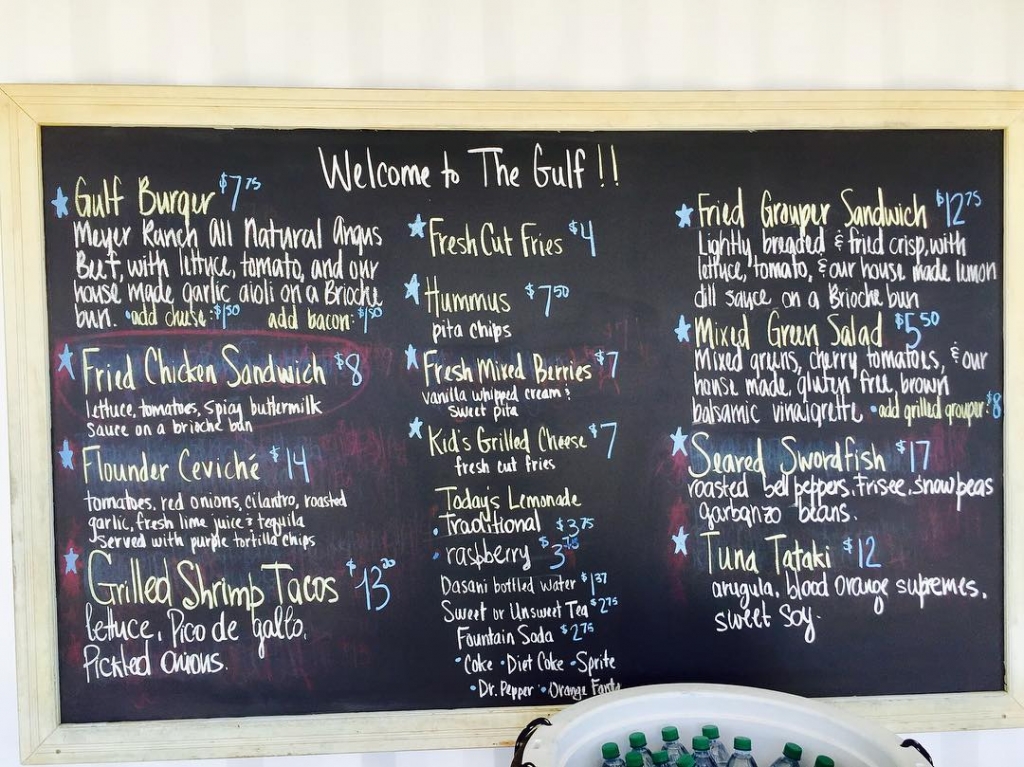 Welcome to The Gulf !!
Gulf Burger $7.75
Meyer Ranch All Natural Angus
Beef, with lettuce, tomato, and our
house made garlic aioli on a Brioche
bun. •add cheese: $1.50 add bacon: $1.50
Fried Chicken Sandwich $8
lettuce, tomatoes, spicy buttermilk
sauce on a brioche bun
Flounder Ceviché $14
tomatoes, red onions, cilantro, roasted
garlic, fresh lime juice & tequila
served with purple tortilla chips
Grilled Shrimp Tacos $13
lettuce, Pico de gallo,
Pickled onions.
Fresh Cut Fries $4
Hummus $7.50
pita chips
Fresh Mixed Berries $7
vanilla whipped cream &
sweet pita
Kid's Grilled Cheese $7
fresh cut fries
Today's Lemonade
• Traditional $3.75
• raspberry $3.75
Dasani bottled water $1.37
Sweet or Unsweet Tea $2.75
Fountain Soda $2.75
•Coke •Diet Coke •Sprite
•Dr. Pepper •Orange Fanta
Fried Grouper Sandwich $12.75
Lightly breaded & fried crisp, with
lettuce, tomato, & our house made lemon
dill sauce on a Brioche bun
Mixed Green Salad $5.50
Mixed greens, cherry tomatoes, & our
house made, gluten free, brown
balsamic vinaigrette •add grilled grouper: $8
Seared Swordfish $17
roasted bell peppers, frisee, snow peas
garbanzo beans.
Tuna Tataki $12
arugula, blood orange supremes,
sweet soy.